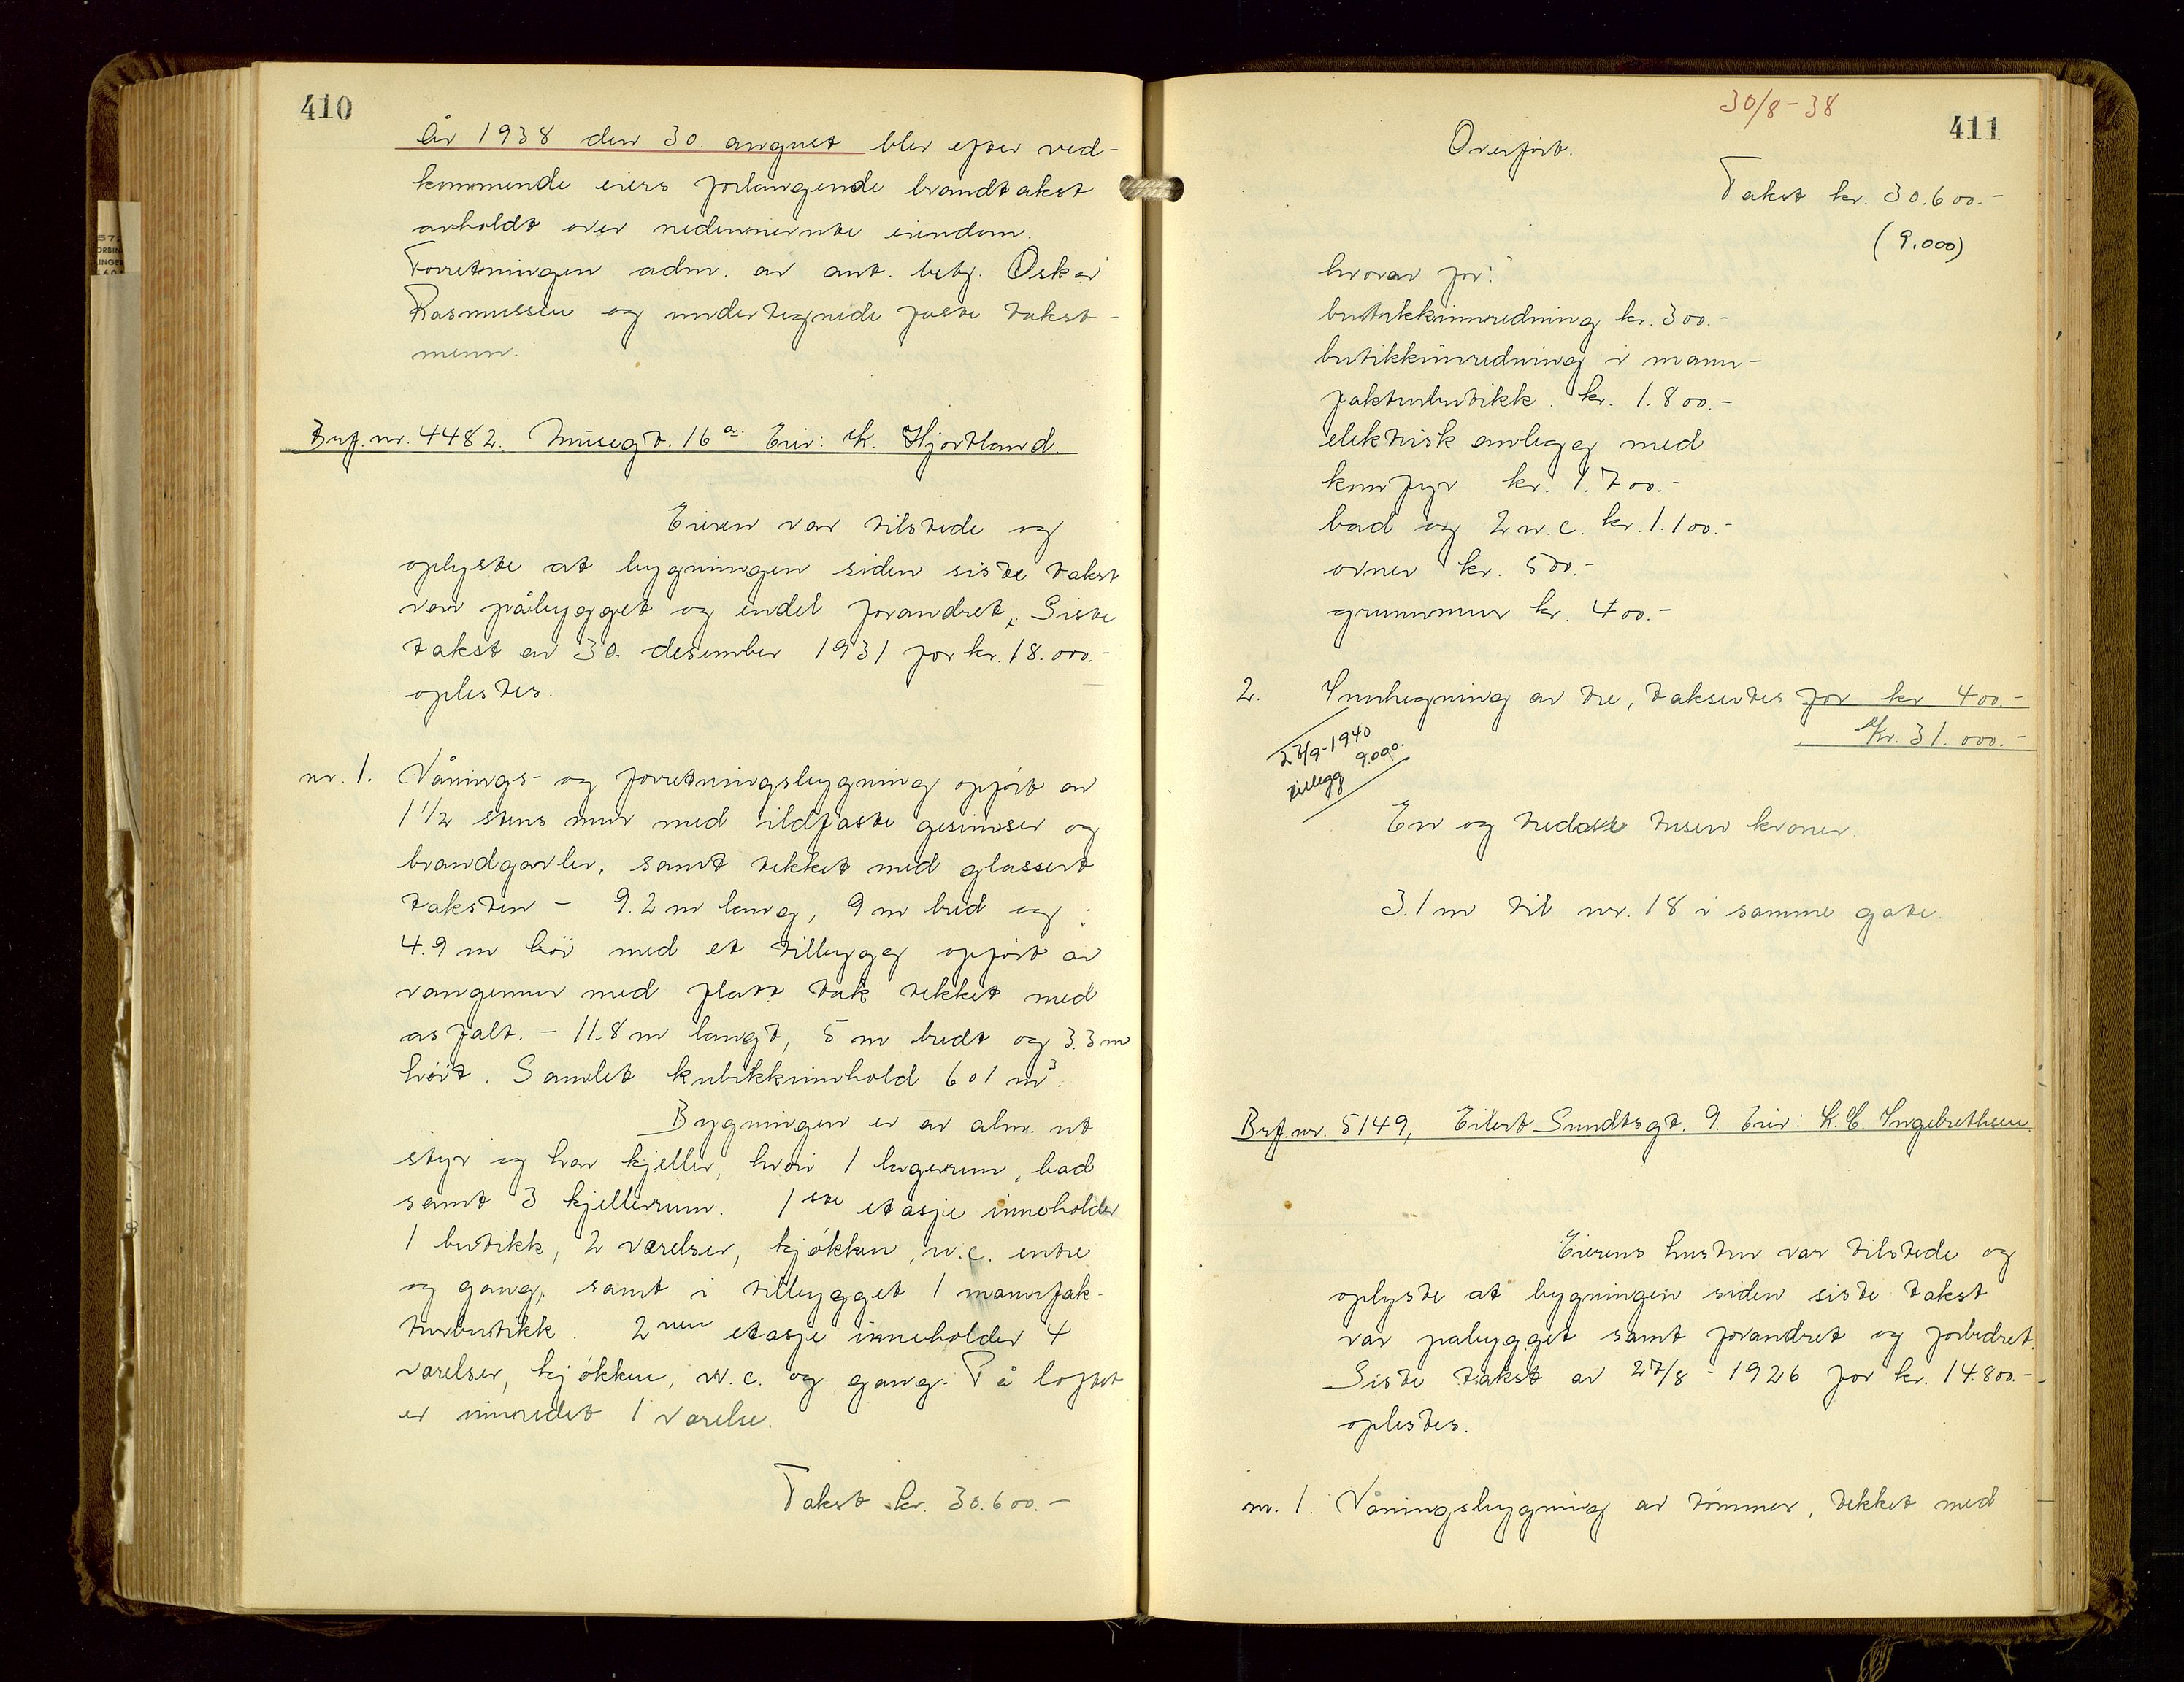 410
År 1938 den 30. august blev efter ved-
kommende eiers forlangende brandtakst
avholdt over nedennevnte eiendom.
Forretningen adm. av ant. betj. Oskar
Rasmussen og undertegnede faste takst-
menn.
Brf. nr. 4482. Musegt. 16 a. Eier: K. Hjortland.
Eieren var tilstede og
oplyste at bygningen siden siste takst
var påbygget og endel forandret. Siste
takst av 30. desember 1931 for kr. 18.000.-
oplestes.
nr. 1. Vånings- og forretningsbygning opført av
1 1/2 stens mur med ildfaste gesimser og
brandgavler, samt tekket med glassert
taksten - 9.2 m lang, 9 m bred og
4.9 m høi med et tilbygg opført av
vangemur med flatt tak tekket med
asfalt. - 11.8 m langt, 5 m bredt og 3.3 m
høit. Samlet kubikkinnhold 601 m³.
Bygningen er av alm. ut
styr og har kjeller, hvori 1 lagerrum, bad
samt 3 kjellerrum. 1ste etasje inneholder
1 butikk, 2 værelser, kjøkken, w.c. entre
og gang, samt i tilbygget 1 manufak-
turbutikk. 2nen etasje inneholder 4
værelser, kjøkken, w.c. og gang. På loftet
er innredet 1 værelse.
Takst kr. 30.600.-
30/8-38
411
Overført.
Takst kr. 30.600.-
(9.000)
hvorav for:
butikkinnredning kr. 300.-
butikkinnredning i manu-
fakturbutikk. kr. 1.800.-
elektrisk anlegg med
komfyr kr. 1.700.-
bad og 2 w.c. kr. 1.100.-
ovner kr. 500.-
grunnmur kr. 400.-
2. Innhegning av tre, takseres for kr 400.-
Kr. 31.000.-
27/9-1940
tillegg 9.000.
En og tredve tusen kroner.
3.1 m til nr. 18 i samme gate.
Brf. nr. 5149, Eilert Sundtsgt. 9. Eier: K. C. Ingebrethsen
Eierens hustru var tilstede og
oplyste at bygningen siden siste takst
var påbygget samt forandret og forbedret.
Siste takst av 27/8-1926 for kr. 14.800.-
oplestes.
nr. 1. Våningsbygning av tømmer, tekket med